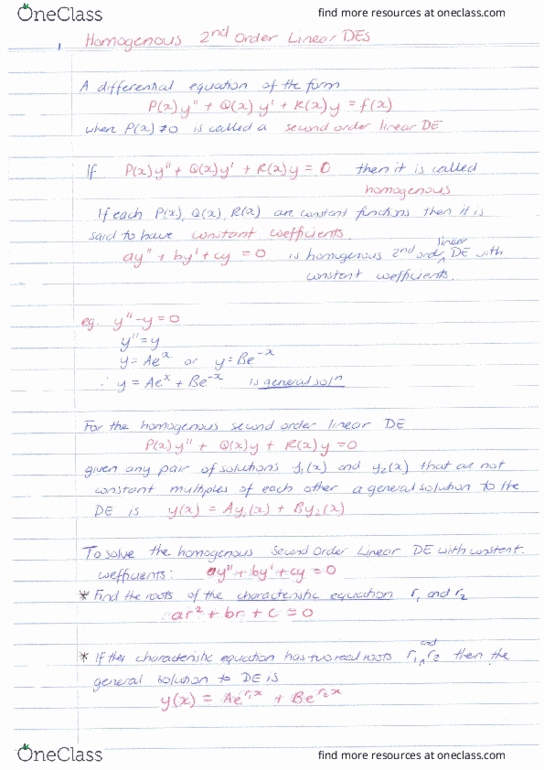 OneClass
find more resources at oneclass.com
1 Homogenous 2nd Order Linear DEs
A differential equation of the form
P(x)y" + Q(x)y' + R(x)y = f(x)
when P(x)≠0 is called a second order linear DE
If P(x)y" + Q(x)y' + R(x)y = 0 then it is called
homogenous
If each P(x), Q(x), R(x) are constant functions then it is
said to have constant coefficients
ay" + by' + cy = 0 is homogenous 2nd order linear DE with
constant coefficients.
eg. y" - y = 0
y" = y
y = Ae^x or y = Be^-x
∴ y = Ae^x + Be^-x is general soln
For the homogenous second order linear DE
P(x)y" + Q(x)y + R(x)y = 0
given any pair of solutions y₁(x) and y₂(x) that are not
constant multiples of each other a general solution to the
DE is y(x) = Ay₁(x) + By₂(x)
To solve the homogenous Second Order Linear DE with constant
coefficients: ay" + by' + cy = 0
* Find the roots of the characteristic equation r₁ and r₂
ar² + br + c = 0
* If the characteristic equation has two real roots r₁, and r₂ then the
general solution to DE is
y(x) = Ae^r₁x + Be^r₂x
OneClass
find more resources at oneclass.com